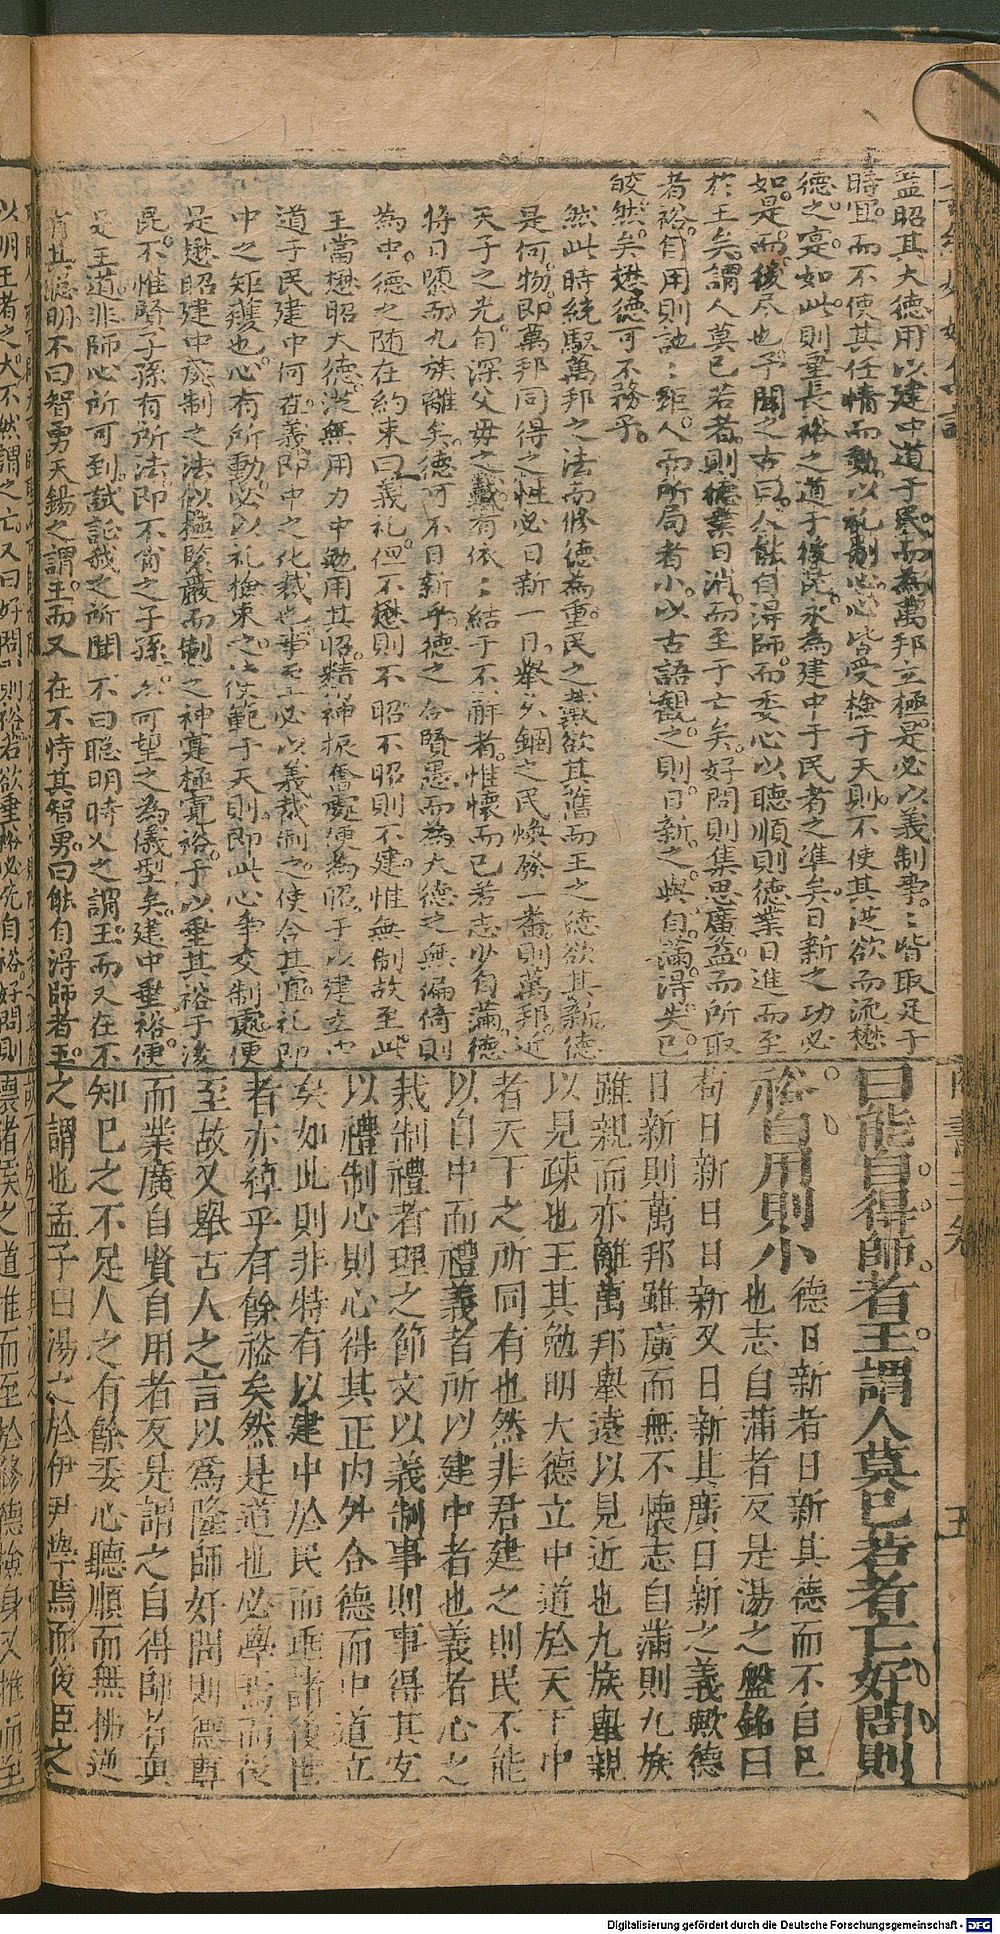 盖昭其大德用以建中道于民而為萬邦立極是必以義制事〻皆取足于
時宜而不使其任情而動以礼制心〻皆受檢于天則不使其從欲而流懋
德之寔如此則垂長裕之道于後昆永為建中于民者之準矣日新之功必
如是而後尽也予聞之古曰人能自得師而委心以聽順則德業日進而至
於王矣謂人莫已若者則德業日消而至于亡矣好問則集思廣益而所取
者裕自用則訑〻距人而所局者小以古語觀之則日新之與自滿得失已
皎然矣懋德可不務乎
然此時統馭萬邦之法而修德為重民之戴欲其舊而王之德欲其新德
是何物即萬邦同得之性必日新一日舉久錮之民煥發一番則萬邦近
天子之光自深父母之戴有依〻結于不解者惟懷而已若志少自滿德
將日隳而九族離矣德可不日新乎德之合賢愚而為大德之無偏倚則
為中德之随在約束曰義礼但不懋則不昭不昭則不建惟無制故至此
王當懋昭大德從無用力中勉用其精神振奮處便為昭于以建立中
道于民建中何在義即中之化裁也事至必以義裁制之使合其宜礼即
中之矩矱也心有所動必以礼檢束之使範于天則即此心事交制處便
是懋昭建中處制之法似極謹嚴而制之神寔極寬裕于以垂其裕于後
昆不惟賢子孫有所法即不肖之子孫亦可望之為儀型矣建中垂裕便
是王道非師心所可到試訟我之所聞不曰聰明時乂之謂王而又在不
有其聰明不曰智勇天錫之謂王而又在不恃其智勇曰能自得師者王
曰能自得師者王謂人莫已若者亡好問則
裕自用則小
德日新者日新其德而不自已
也志自滿者反是湯之盤銘曰
苟日新日日新又日新其廣日新之義歟德
日新則萬邦雖廣而無不懷志自滿則九族
雖親而亦離萬邦舉遠以見近也九族舉親
以見疎也王其勉明大德立中道於天下中
者天下之所同有也然非君建之則民不能
以自中而禮義者所以建中者也義者心之
裁制禮者理之節文以義制事則事得其宜
以禮制心則心得其正內外合德而中道立
矣如此則非特有以建中於民而垂諸後世
者亦綽乎有餘裕矣然是道也必學焉而後
至故又舉古人之言以為隆師好問則德尊
而業廣自賢自用者反是謂之自得師者真
知巳之不足人之有餘委心聽順而無拂逆
之謂也孟子曰湯之於伊尹學焉而後臣之
五
Digitalisierung gefördert durch die Deutsche Forschungsgemeinschaft - DFG